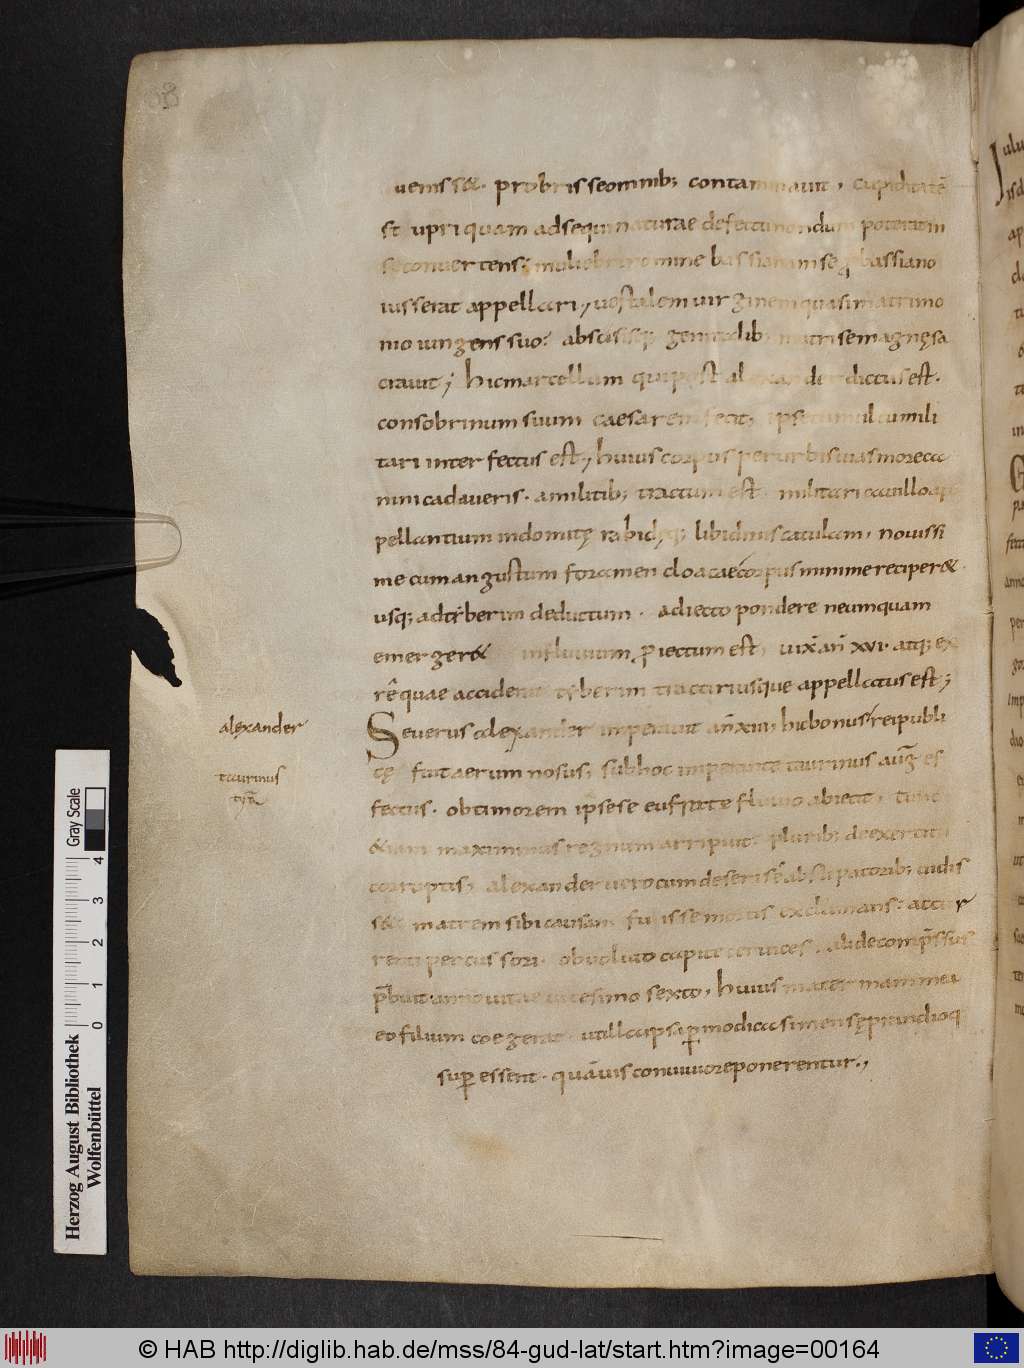 uenisset. probris se omnib; contaminauit, cupiditatē
stupri quam adsequi naturae defectu nondum poterat in
se conuertens; muliebri nomine bassianam se ꝓ bassiano
iusserat appellari, uestalem uirginem quasi matrimo
nio iungens suo; abscisisq; genitalib; matri se magnę sa
crauit; hic marcellum qui post alexander dictus est.
consobrinum suum caesarem fecit, ipse tumultu mili
tari interfectus est, huius corpus per urbis uias more ca
nini cadaueris. a militib; tractum est. militari cauillo ap
pellantium indomitę rabidęq; libidinis catulam, nouissi
me cum angustum foramen cloacae corpus minime reciper&.
usq; ad tyberim deductum. adiecto pondere ne umquam
emerger& in fluuium ꝓiectum est, uix̄ an̄ xvi. atq; ex
rē quae acciderat tyberinus tractitiusque appellatus est;
Seuerus alexander imperauit an̄ xiii, hic bonus reipubli
cę fuit aerumnosus, sub hoc imperante taurinus aug̃ es
fectus. ob timorem ipse se eufrate fluuio abiecit, tunc
&iam maximinus regnum arripuit. plurib; de exercitu
corruptis, alexander uero cum deseri se ab stipatorib; uidis
s& matrem sibi causam fuisse mortis exclamans. accur
renti percussori. obuoluto capite ceruices. ualide compressas
p̄buit anno uitae uicesimo sexto, huius mater mammea
eo filium coegerat. ut illa ipsa ꝑmodica si mensę prandioq;
suꝑessent. quāuis conuiuio reponerentur.,
alexander
taurinus
tyr̄
Herzog August Bibliothek
Wolfenbüttel
Gray Scale
0 1 2 3 4
© HAB http://diglib.hab.de/mss/84-gud-lat/start.htm?image=00164